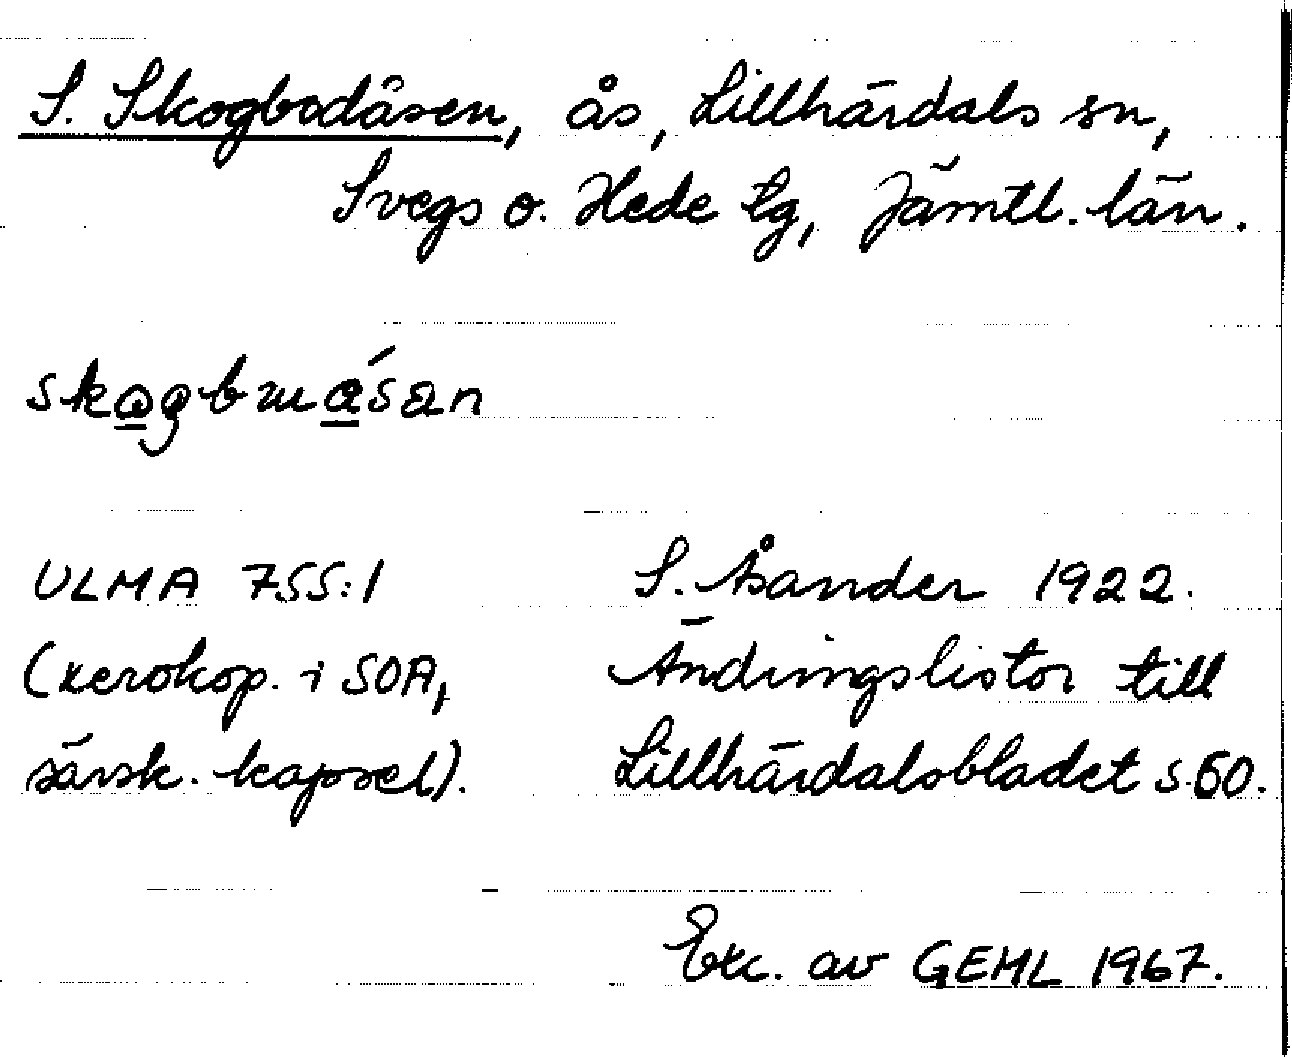 S. Skogbodåsen, ås, Lillhärdals sn,
Svegs o. Hede tg, Jämtl. län.
skogbmåsan
ULMA 755:1 S. Åsander 1922.
(xerokop. i SOA, Ändringslistor till
särsk. kapsel). Lillhärdalsbladet s.60.
Exc. av GEHL 1967.